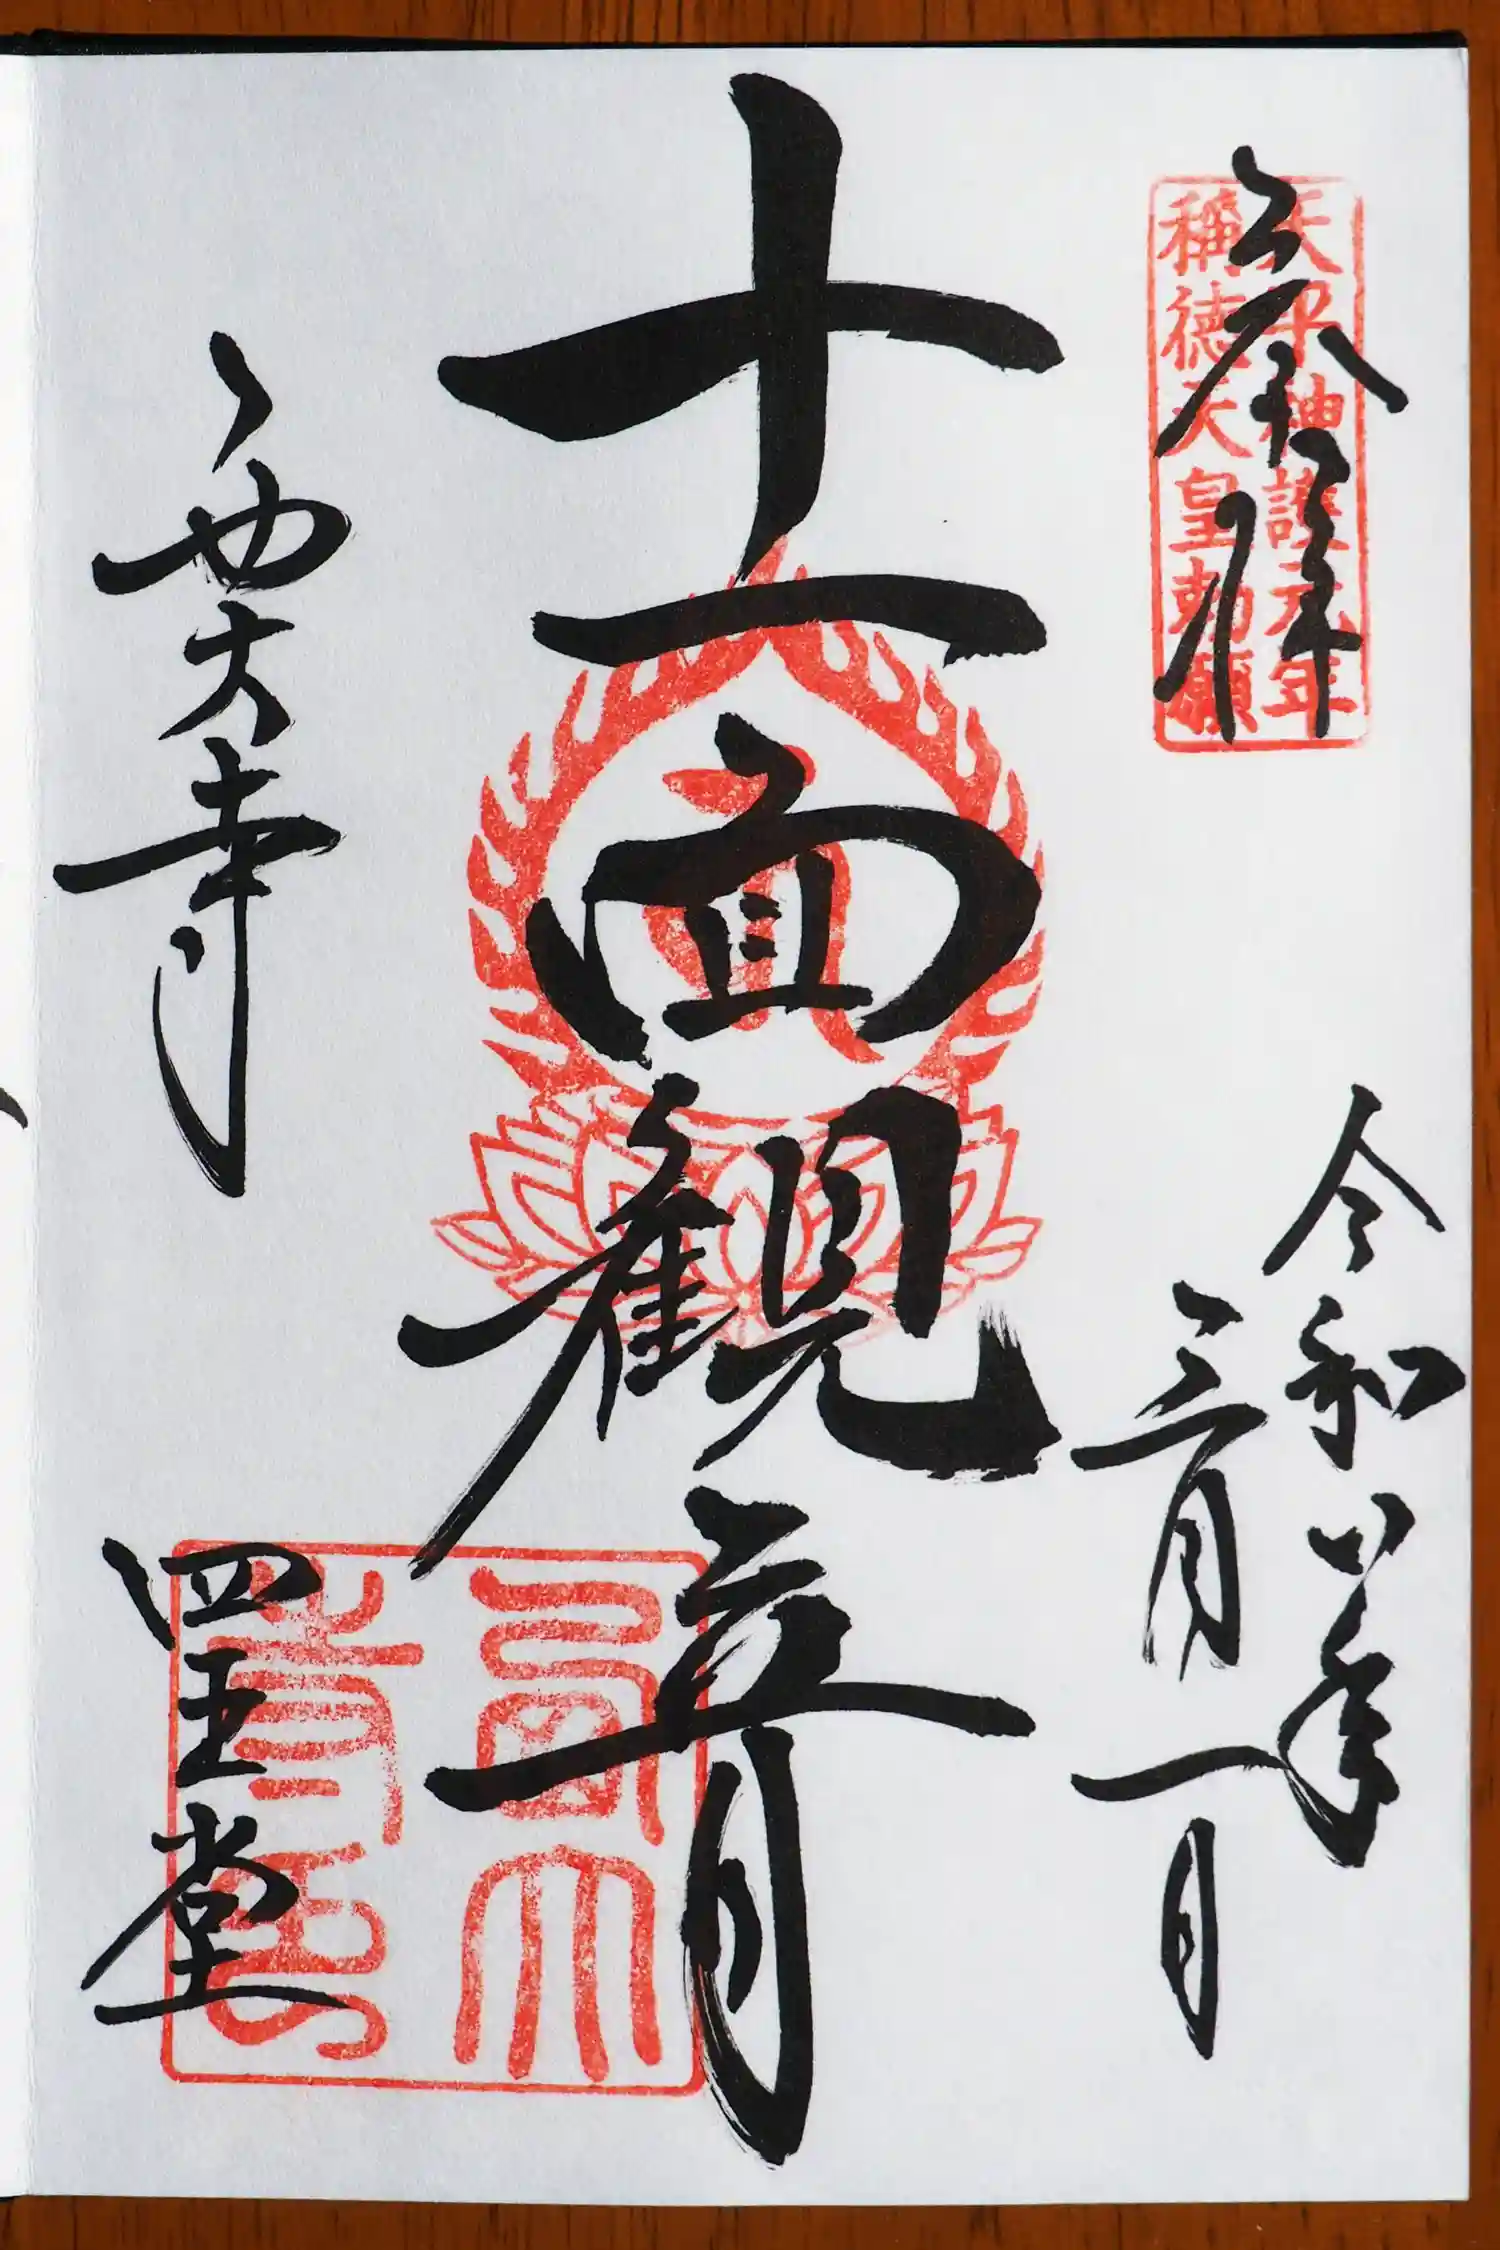 奉拝
天平神護元年
稱徳天皇勅願
令和八年
三月一日
十一面観音
西大寺
四王堂